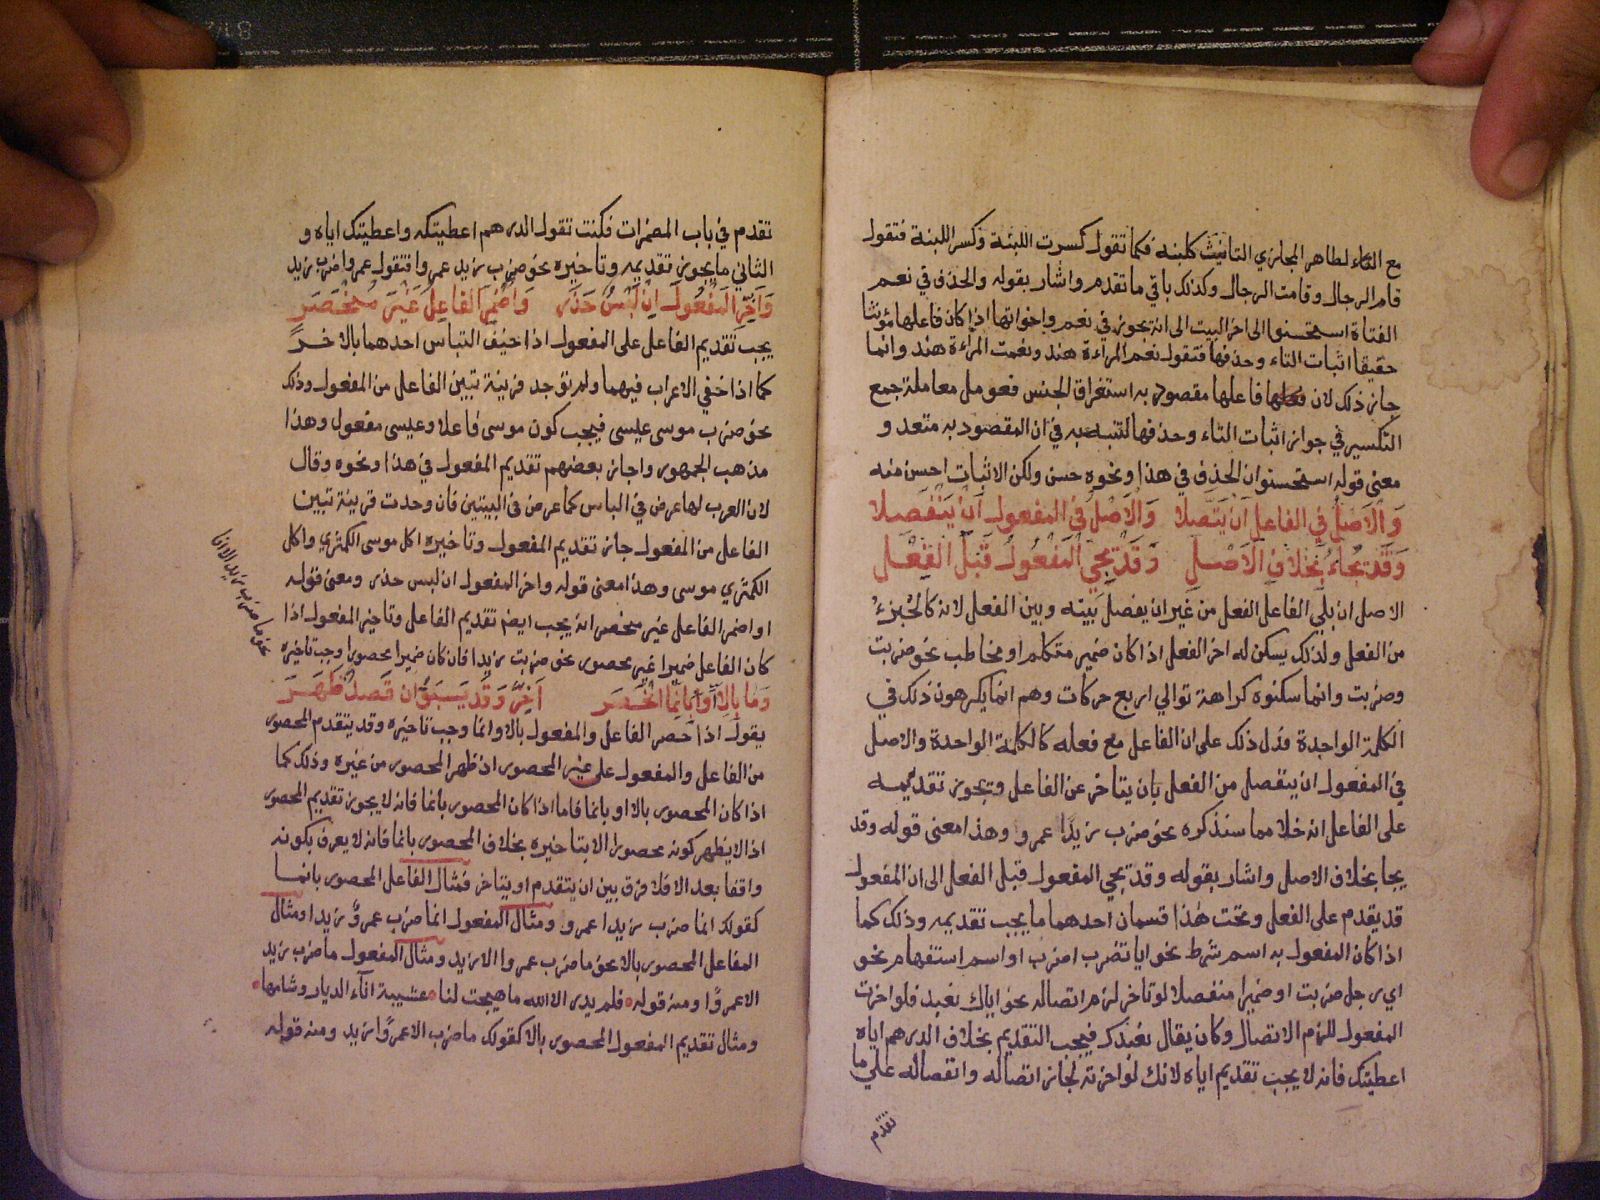 مع التاء لظاهر المجازي التانيث كلبنه فكما تقول كسرت اللبنة وكسر اللبنة فتقول
قام الرجال وقامت الرجال وكذلك باقي ما تقدم واشار بقوله والحذف في نعم
الفتاة استحسنوا الى اخر البيت الى انه يجوز في نعم واخواتها اذا كان فاعلها مؤنثا
حقيقيا اثبات التاء وحذفها فتقول نعم المراءة هند ونعمت المراءة هند وانما
جاز ذلك لان فاعلها مقصود به استغراق الجنس فعومل معاملة جمع
التكسير في جواز اثبات التاء وحذفها لشبهه به في ان المقصود به متعدد و
معنى قوله استحسنوا ان الحذف في هذا ونحوه حسن ولكن الاثبات احسن منه
وَالْاَصْلُ في الفاعل اَنْ يَتَّصِلا وَالْاَصْلُ في المفعول اَنْ يَنْفَصِلا
وَقَدْ يُجَاءُ بِخِلَافِ الْاَصْلِ وَقَدْ يَجِي الْمَفْعُولُ قَبْلَ الْفِعْلِ
الاصل ان يلي الفاعل الفعل من غير ان يفصل بينه وبين الفعل لانه كالجزء
من الفعل ولذلك يسكن له اخر الفعل اذا كان ضمير متكلم او مخاطب نحو ضربت
وضربت وانما سكنوه كراهة توالي اربع حركات وهم انما يكرهون ذلك في
الكلمة الواحدة فدل ذلك على ان الفاعل مع فعله كالكلمة الواحدة والاصل
في المفعول ان ينفصل من الفعل بان يتاخر عن الفاعل ويجوز تقديمه
على الفاعل ان خلا مما سنذكره نحو ضرب زيدا عمرو وهذا معنى قوله وقد
يجا بخلاف الاصل واشار بقوله وقد يجي المفعول قبل الفعل الى ان المفعول
قد يقدم على الفعل وتحت هذا قسمان احدهما ما يجب تقديمه وذلك كما
اذا كان المفعول به اسم شرط نحو ايا تضرب اضرب او اسم استفهام نحو
اي رجل ضربت او ضميرا منفصلا لو تاخر لزم اتصاله نحو اياك نعبد فلو اخرت
المفعول للزم الاتصال وكان يقال نعبدك فيجب التقديم بخلاف الدرهم اياه
اعطيتك فانه لا يجب تقديم اياه لانك لو اخرته لجاز اتصاله وانفصاله على ما
تقدم
تقدم في باب المضمرات فكنت تقول الدرهم اعطيتكه واعطيتك اياه و
الثاني ما يجوز تقديمه وتاخيره نحو ضرب زيد عمروا فتقول عمروا ضرب زيد
وَاَخِّرِ الْمَفْعُولَ اِنْ لَبْسٌ حُذِرَ وَاُضْمِرَ الْفَاعِلُ غَيْرَ مُنْحَصِرْ
يجب تقديم الفاعل على المفعول اذا خيف التباس احدهما بالاخر
كما اذا خفي الاعراب فيهما ولم توجد قرينة تبين الفاعل من المفعول وذلك
نحو ضرب موسى عيسى فيجب كون موسى فاعلا وعيسى مفعول وهذا
مذهب الجمهور واجاز بعضهم تقديم المفعول في هذا ونحوه وقال
لان العرب لها عرض في الباس كما عرض في البيتين فان وحدت قرينة تبين
الفاعل من المفعول جاز تقديم المفعول وتاخيره اكل موسى الكمثري واكل
الكمثري موسى وهذا معنى قوله واخر المفعول ان لبس حذر ومعنى قوله
او اضمر الفاعل غير منحصر انه يجب ايضا تقديم الفاعل وتاخير المفعول اذا
كان الفاعل ضميرا غير محصور نحو ضربت زيدا فان كان ضميرا محصورا وجب تاخيره
نحو ما ضرب زيدا الا انا
وَمَا بِالَّا اَوْ بِانَّما انْحَصَرْ اَخِّرْ وَقَدْ يَسْبِقُ ان قصدٌ ظَهَرَ
يقول اذا حصر الفاعل والمفعول بالا وانما وجب تاخيره وقد يتقدم المحصور
من الفاعل والمفعول على غير المحصور اذ ظهر المحصور من غيره وذلك كما
اذا كان المحصور بالا او بانما فاما اذا كان المحصور بانما فانه لا يجوز تقديم المحصور
اذ لا يظهر كونه محصورا الا بتاخيره بخلاف المحصور بانما فانه لا يعرف بكونه
واقفا بعد الا فلا فرق بين ان يتقدم او يتاخر فمثال الفاعل المحصور بانما
كقولك انما ضرب زيدا عمرو ومثال المفعول انما ضرب عمرو زيدا ومثال
الفاعل المحصور بالا نحو ما ضرب عمروا الا زيد ومثال المفعول ما ضرب زيد
الا عمروًا ومنه قوله فلم يدر الا الله ما هيجت لنا عشيبة اناء الديار وشامها
ومثال تقديم المفعول المحصور بالا كقولك ما ضرب الا عمروًا زيد ومنه قوله